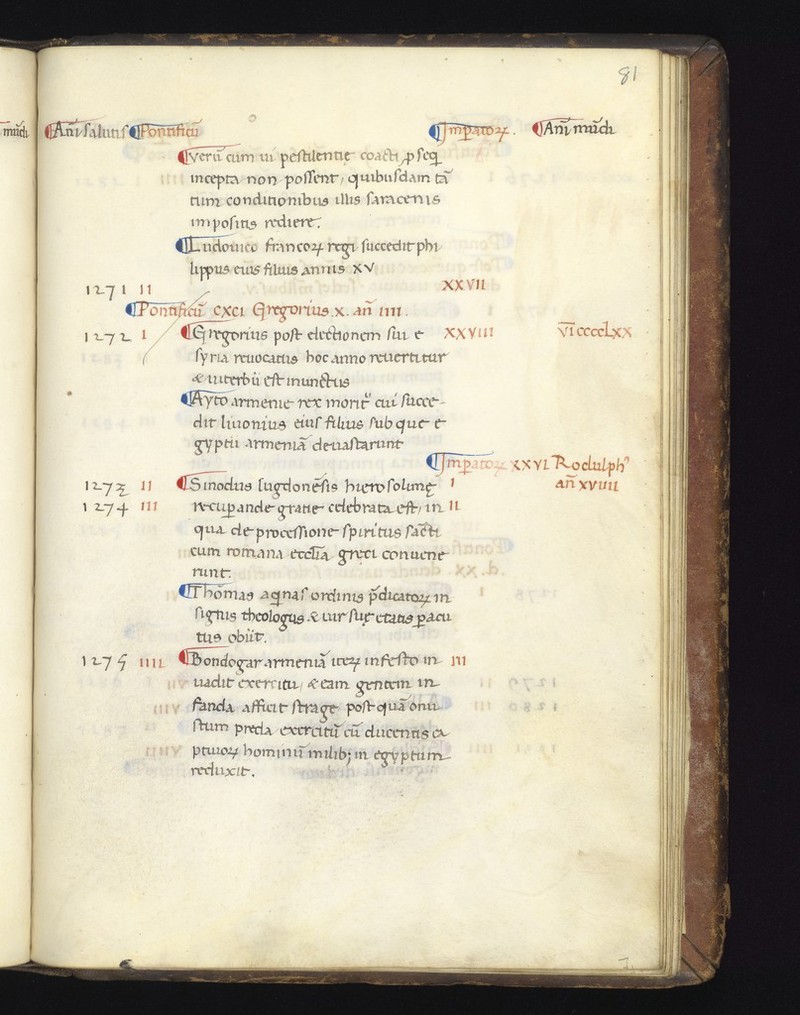 81
mūdi
Anī salutis Pontificū Imꝑatoꝝ. Anī mūdi
Verū cum ui pestilentie coacti ꝓseq̄
incepta non possent, quibusdam tā
tum conditionibus illis saracenis
impositis rediere.
Ludouico francoꝝ regi succedit phi
lippus eius filius annis XV
1271 II XXVII
Pontificū CXCI Gregorius .X. añ IIII.
1272 I Gregorius post electionem sui e XXVIII VI CCCCLXX
syria reuocatus hoc anno reuertitur
& uiterbii est inunctus
Ayto armenie rex morit᷑ cui succe-
dit liuonius eius filius sub que e
gyptii armeniā deuastarunt
Imꝑatoꝝ XXVI Rodulphꝰ
1273 II Sinodus lugdonēsis hierosolimę I añ XVIIII
1274 III recuꝑande gratie celebrata est, in II
qua de processione spiritus sācti
cum romana eccl̄ia greci conuene
runt.
Thomas aq̄nas ordinis p̄dicatoꝝ in
signis theologus & uir suę etatis ꝑacu
tus obiit.
1275 IIII Bondogar armeniā iteꝝ infesto in III
uadit exercitu, & eam gentem in
fanda afficit strage postquā onu
stum preda exercitū cū ducentis ca
ptiuoꝝ hominū milibꝫ in egyptum
reduxit.